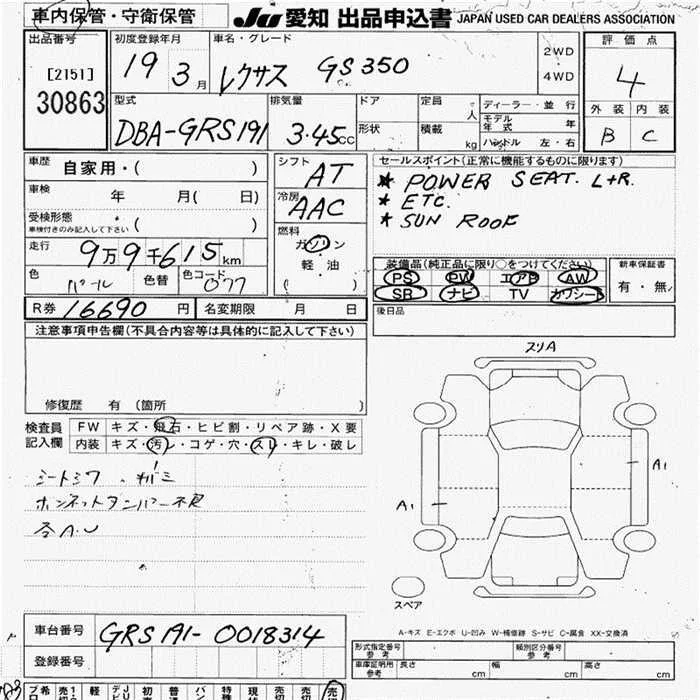 車内保管・守衛保管
JU 愛知 出品申込書 JAPAN USED CAR DEALERS ASSOCIATION
出品番号
[2151]
30863
初度登録年月
19 3月
車名・グレード
レクサス GS350
2WD
4WD
評価点
4
外装 内装
B C
型式
DBA-GRS191
排気量
3.45cc
ドア
形状
定員 人
積載 kg
ディーラー・並行
モデル年式 年
ハンドル 左・右
車歴 自家用・( )
車検 年 月( 日)
受検形態
車検付きのみ記入して下さい ( )
走行 9万9千615km
色 パール 色替 色コード 077
シフト AT
冷房 AAC
燃料
ガソリン
軽油
( )
セールスポイント(正常に機能するものに限ります)
* POWER SEAT. L+R.
* ETC.
* SUN ROOF
装備品(純正品に限り○をつけてください)
PS PW エアB AW
SR ナビ TV カワシート
新車保証書
有・無
後日品
R券 16690円 名変期限 月 日
注意事項申告欄(不具合内容等は具体的に記入して下さい)
修復歴 有 (箇所
検査員記入欄
FW キズ・飛石・ヒビ割・リペア跡・X要
内装 キズ・汚レ・コゲ・穴・スレ・キレ・破レ
シートシワ
ボンネットダンパー不良
各A.U
スリA
A1
A1
スペア
A-キズ E-エクボ U-凹み W-補修跡 S-サビ C-腐食 XX-交換済
車台番号 GRS191-0018314
登録番号
形式指定番号 参考
類別区分番号 参考
車庫証明用 参考 長さ cm 幅 cm 高さ cm